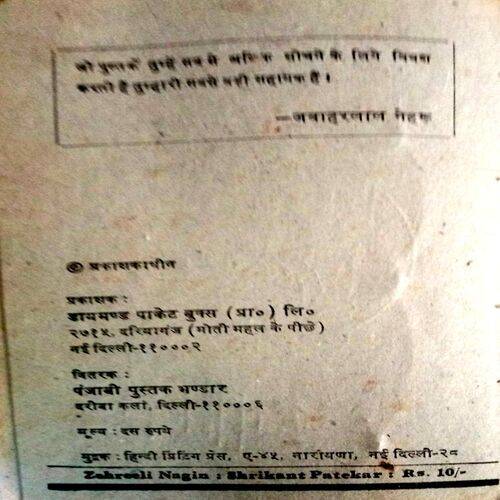 जो पुस्तकें तुम्हें सब से अधिक सोचने के लिये विवश
करती हैं तुम्हारी सबसे बड़ी सहायक हैं ।
—जवाहरलाल नेहरू
© प्रकाशकाधीन
प्रकाशक :
डायमण्ड पाकेट बुक्स (प्रा०) लि०
२७१५, दरियागंज (मोती महल के पीछे)
नई दिल्ली-११०००२
वितरक :
पंजाबी पुस्तक भण्डार
दरीबा कलां, दिल्ली-११०००६
मूल्य : दस रुपये
मुद्रक : हिन्दी प्रिंटिंग प्रेस, ए-४५, नारायणा, नई दिल्ली-२८
Zehreeli Nagin : Shrikant Patekar : Rs. 10/-